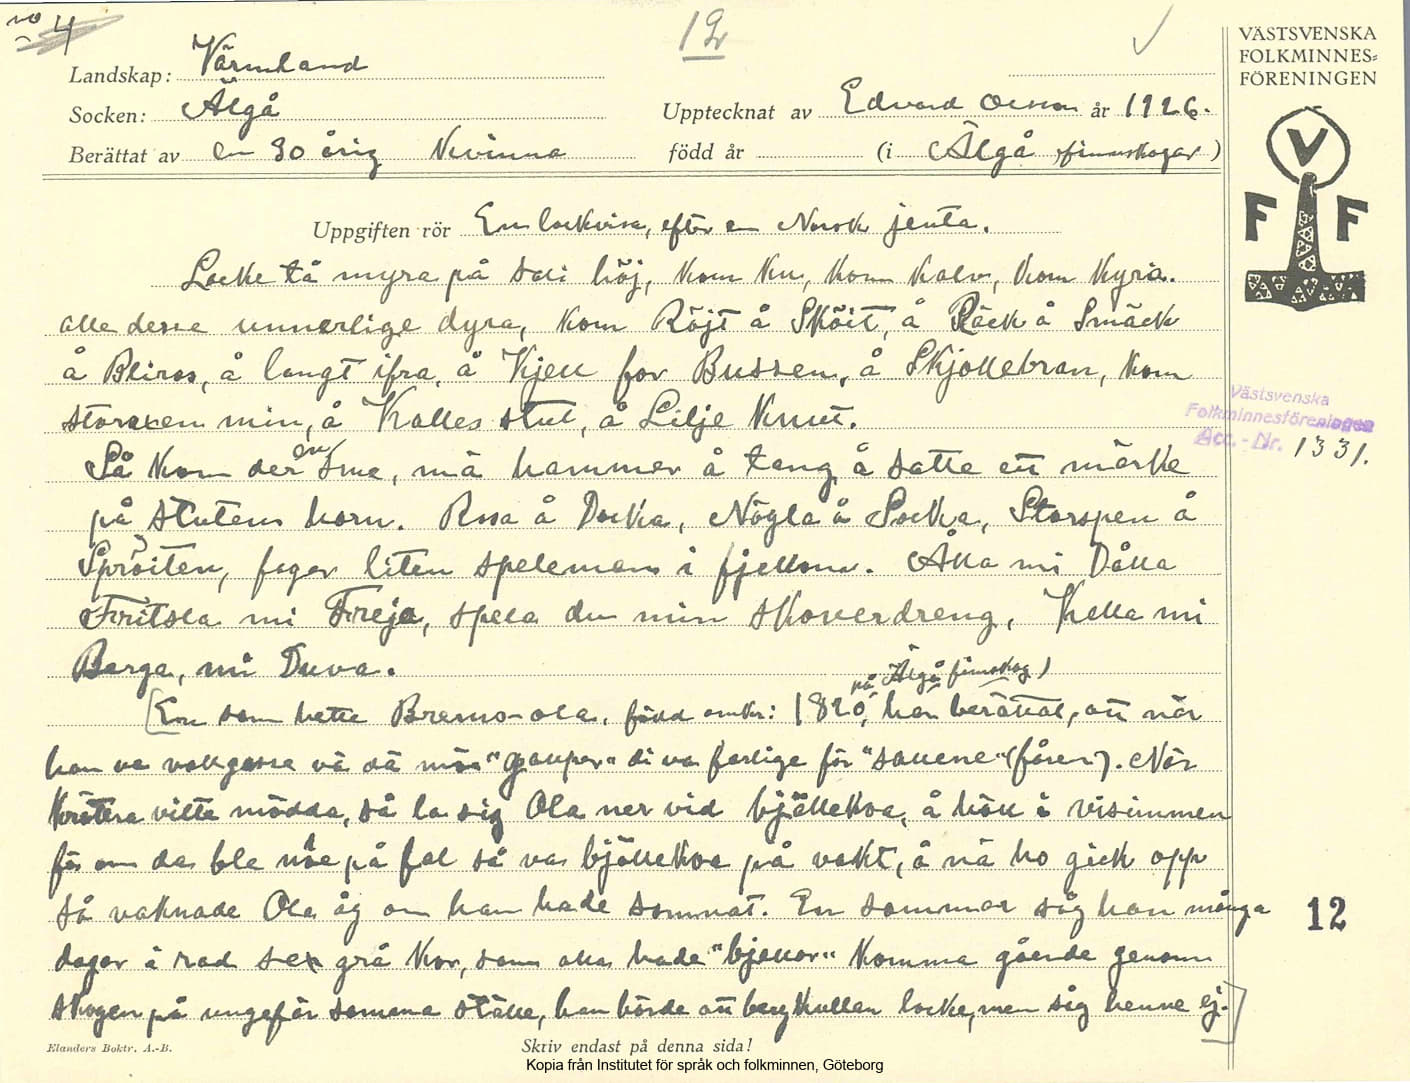 no 4
12
VÄSTSVENSKA
FOLKMINNES=
FÖRENINGEN
Landskap: Värmland
Socken: Älgå
Upptecknat av Edvard Olsson år 1926.
Berättat av en 30 årig Kvinna
född år (i Älgå finnskogar)
V F F
Uppgiften rör En lockvisa, efter en Norsk jenta.
Locke tå myra på sali höj, Kom Ku, Kom Kalv, Kom Kyra.
alle desse unnerlige dyra, Kom Röjt å Sköit, å Räck å Smäck
å Bliros, å langt ifra, å Kjell for Bussen, å Skjollebran, Kom
storoxen min, å Kalles stut, å Lilje Knut.
Västsvenska
Folkminnesföreningen
Acc.-Nr. 1331.
Så Kom der en Sme, mä hammer å tang å satte ett märke
på stutens horn. Rosa å Docka, Nögla å Socka, Storspen å
Spröiten, fager liten speleman i fjellom. Åkka mi Dåkka
Fritsla mi Freja, spela du min skoverdreng, Kella mi
Berga, mi Duva.
[En som hette Bremo-ola, född omkr: 1820, på Älgå finnskog) har berättat, att när
han va vallgosse va dä möe "gauper" di va farlige för "sauene" (fåren). När
Krötera ville mödda, så la sig Ola ner vid bjällekoa, å höll i visimmen
för om das ble nöe på fal så var bjällekoa på vakt, å nä ho gick opp
så vaknade Ola åg om han hade somnat. En sommar såg han många
dagar i rad sex grå Kor, som alla hade "bjellor" Komma gående genom
skogen på ungefär samma ställe, han hörde att bergkullan locke, men såg henne ej.]
12
Elanders Boktr. A.-B.
Skriv endast på denna sida!
Kopia från Institutet för språk och folkminnen, Göteborg